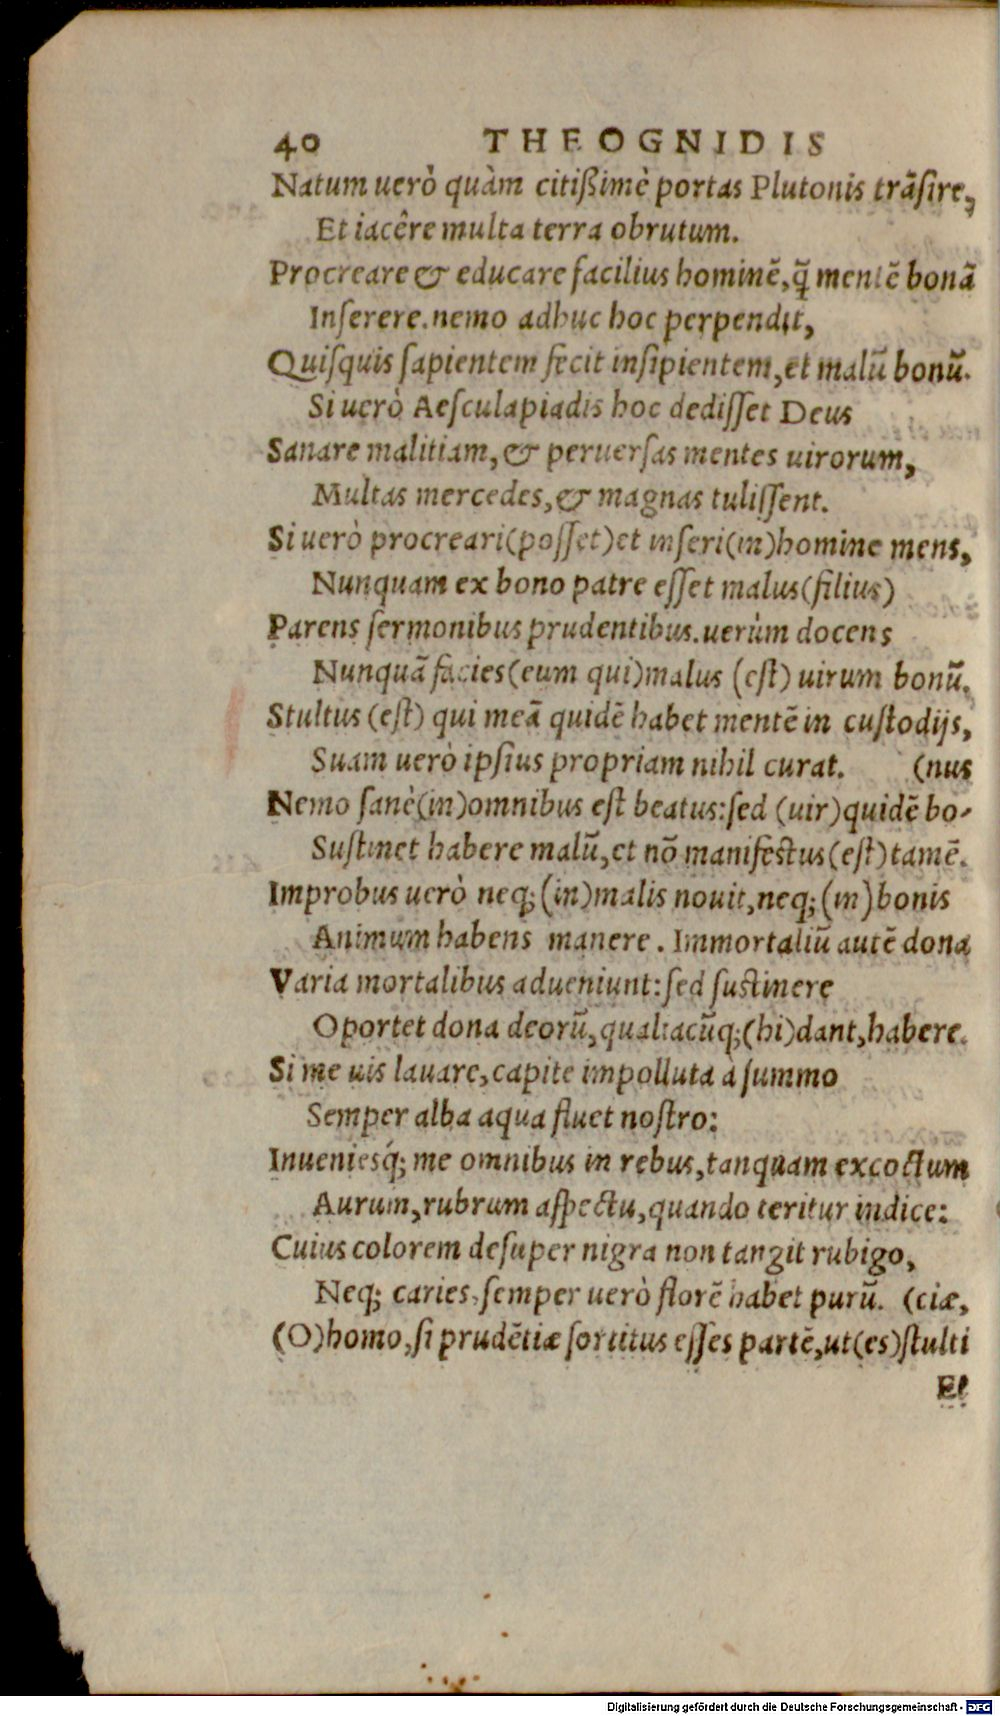 40 THEOGNIDIS
Natum uerò quàm citißimè portas Plutonis trãsire,
Et iacêre multa terra obrutum.
Procreare & educare facilius hominẽ, q̃ mentẽ bonã
Inserere. nemo adhuc hoc perpendit,
Quisquis sapientem fecit insipientem, et malũ bonũ.
Si uerò Aesculapiadis hoc dedisset Deus
Sanare malitiam, & peruersas mentes uirorum,
Multas mercedes, & magnas tulissent.
Si uerò procreari (posset) et inseri (in) homine mens,
Nunquam ex bono patre esset malus (filius)
Parens sermonibus prudentibus. uerùm docens
Nunquã facies (eum qui) malus (est) uirum bonũ.
Stultus (est) qui meã quidẽ habet mentẽ in custodijs,
Suam uerò ipsius propriam nihil curat. (nus
Nemo sanè (in) omnibus est beatus: sed (uir) quidẽ bo-
Sustinet habere malũ, et nõ manifestus (est) tamẽ.
Improbus uerò neq; (in) malis nouit, neq; (in) bonis
Animum habens manere. Immortaliũ autẽ dona
Varia mortalibus adueniunt: sed sustinere
Oportet dona deorũ, qualiacũq; (hi) dant, habere.
Si me uis lauare, capite impolluta à summo
Semper alba aqua fluet nostro:
Inueniesq́; me omnibus in rebus, tanquam excoctum
Aurum, rubrum aspectu, quando teritur indice:
Cuius colorem desuper nigra non tangit rubigo,
Neq; caries, semper uerò florẽ habet purũ. (ciæ,
(O) homo, si prudẽtiæ sortitus esses partẽ, ut (es) stulti
Et
Digitalisierung gefördert durch die Deutsche Forschungsgemeinschaft - DFG